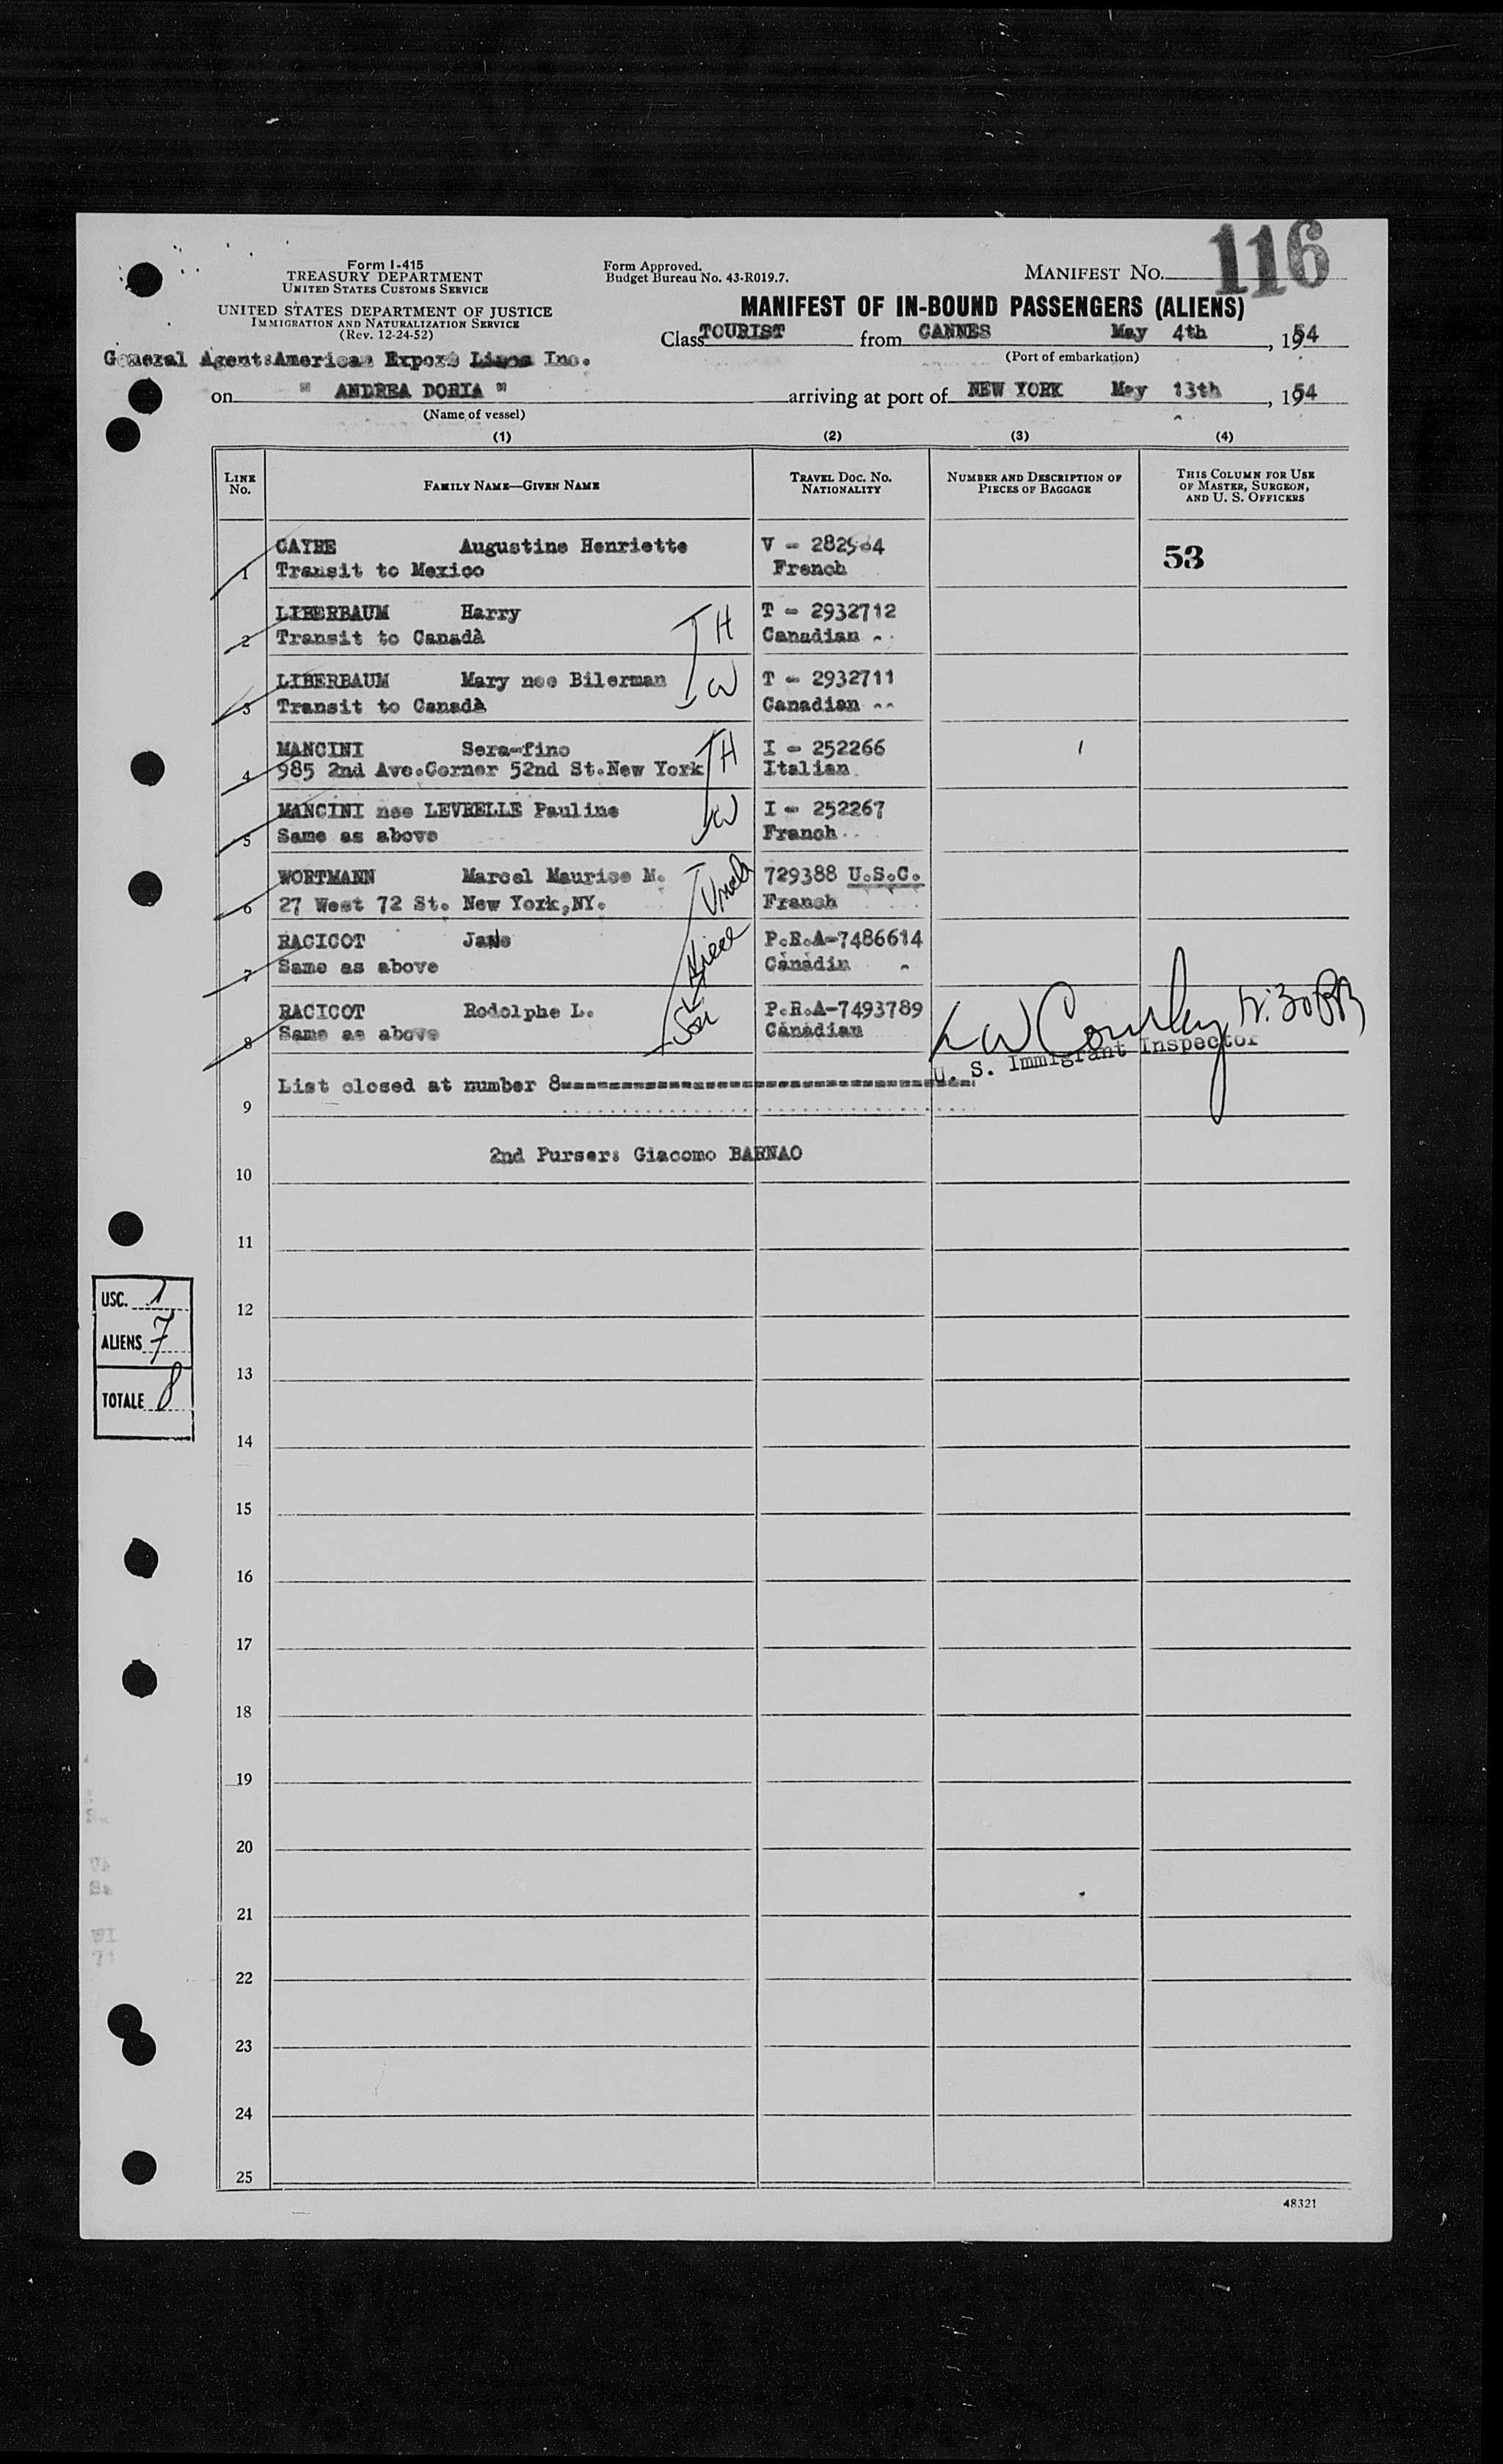 116
Form I-415
TREASURY DEPARTMENT
UNITED STATES CUSTOMS SERVICE
UNITED STATES DEPARTMENT OF JUSTICE
IMMIGRATION AND NATURALIZATION SERVICE
(Rev. 12-24-52)
Form Approved.
Budget Bureau No. 43-R019.7.
MANIFEST No.
MANIFEST OF IN-BOUND PASSENGERS (ALIENS)
Class TOURIST from CANNES May 4th, 1954
(Port of embarkation)
General Agent:American Export Lines Inc.
on " ANDREA DORIA " arriving at port of NEW YORK May 13th, 1954
(Name of vessel)
(1) (2) (3) (4)
LINE No. FAMILY NAME—GIVEN NAME TRAVEL DOC. No. NATIONALITY NUMBER AND DESCRIPTION OF PIECES OF BAGGAGE THIS COLUMN FOR USE OF MASTER, SURGEON, AND U. S. OFFICERS
CAYRE Augustine Henriette V - 53
1 Transit to Mexico French
LIBERBAUM Harry H T - 2932712
2 Transit to Canadà Canadian
LIBERBAUM Mary nee Bilerman W T - 2932711
3 Transit to Canadà Canadian
MANCINI Sera-fino H I - 252266 1
4 985 2nd Ave.Corner 52nd St.New York Italian
MANCINI nee LEVRELLE Pauline W I - 252267
5 Same as above Franch
WORTMANN Marcel Maurice M. Uncle 729388 U.S.C.
6 27 West 72 St. New York,NY. Franch
RACICOT Niece P.R.A-7486614
7 Same as above Canadin
RACICOT Rodolphe L. Son P.R.A-7493789
8 Same as above Canadian
U. S. Immigrant Inspector
List closed at number 8
9
2nd Purser: Giacomo BARNAO
10
11
USC. 1
12
ALIENS 7
13
TOTALE 8
14
15
16
17
18
19
20
21
22
23
24
25
48321